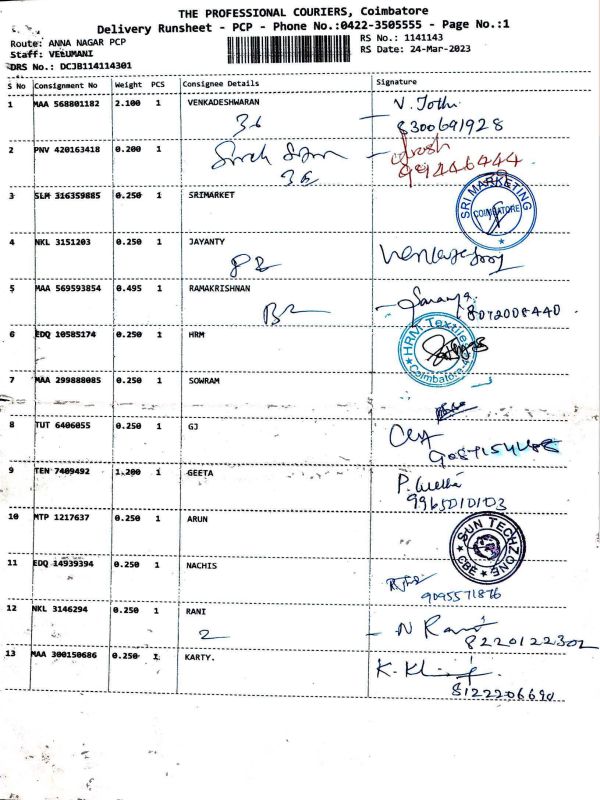 THE PROFESSIONAL COURIERS, Coimbatore
Delivery Runsheet - PCP - Phone No.:0422-3505555 - Page No.:1
Route: ANNA NAGAR PCP
Staff: VELUMANI
DRS No.: DCJB114114301
RS No.: 1141143
RS Date: 24-Mar-2023
S No Consignment No Weight PCS Consignee Details Signature
1 MAA 568801182 2.100 1 VENKADESHWARAN V. Jothi
36 8300691928
2 PNV 420163418 0.200 1
36
3 SLM 316359885 0.250 1 SRIMARKET
SRI MARKETING
COIMBATORE
4 NKL 3151203 0.250 1 JAYANTY
5 MAA 569593854 0.495 1 RAMAKRISHNAN Saranya
8072008440
6 EDQ 10585174 0.250 1 HRM
HRM Textile
Coimbatore
7 MAA 299888085 0.250 1 SOWRAM
8 TUT 6406055 0.250 1 GJ
9 TEN 7409492 1.200 1 GEETA P.
9965010103
10 MTP 1217637 0.250 1 ARUN
SUN TECHZONE
CBE
11 EDQ 14939394 0.250 1 NACHIS
9095571876
12 NKL 3146294 0.250 1 RANI N Rani
2 8220122302
13 MAA 300150686 0.250 1 KARTY. K.
8122206690